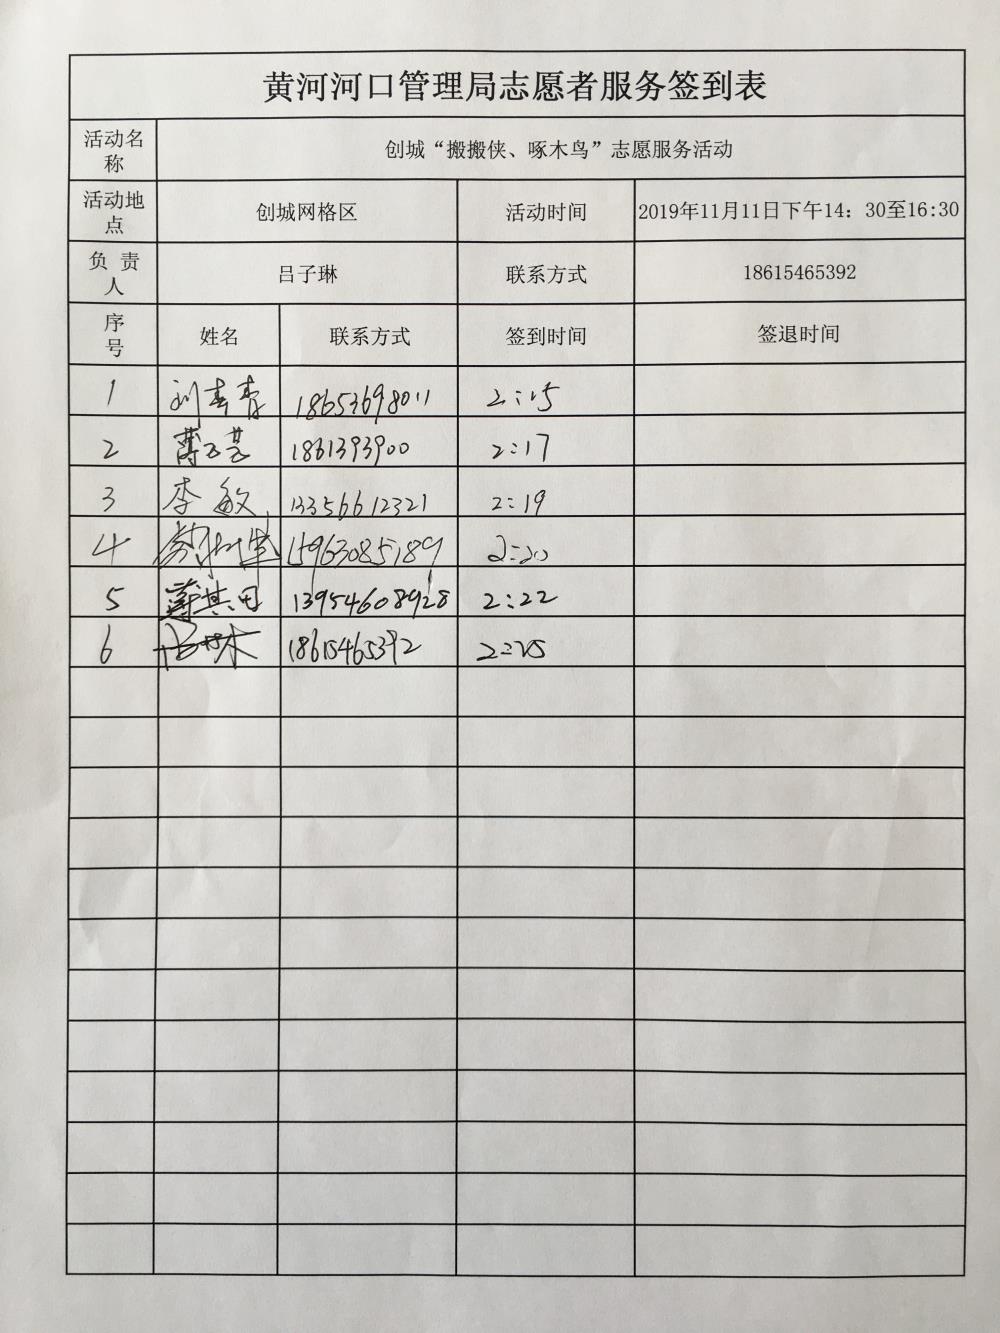 黄河河口管理局志愿者服务签到表
活动名称 创城“搬搬侠、啄木鸟”志愿服务活动
活动地点 创城网格区 活动时间 2019年11月11日下午14：30至16:30
负 责人 吕子琳 联系方式 18615465392
序号 姓名 联系方式 签到时间 签退时间
1 刘春青 18653698011 2:15
2 1861393900 2:17
3 李敏 13356612321 2:19
4 15963085189 2:20
5 其田 13954608928 2:22
6 18615465392 2:25